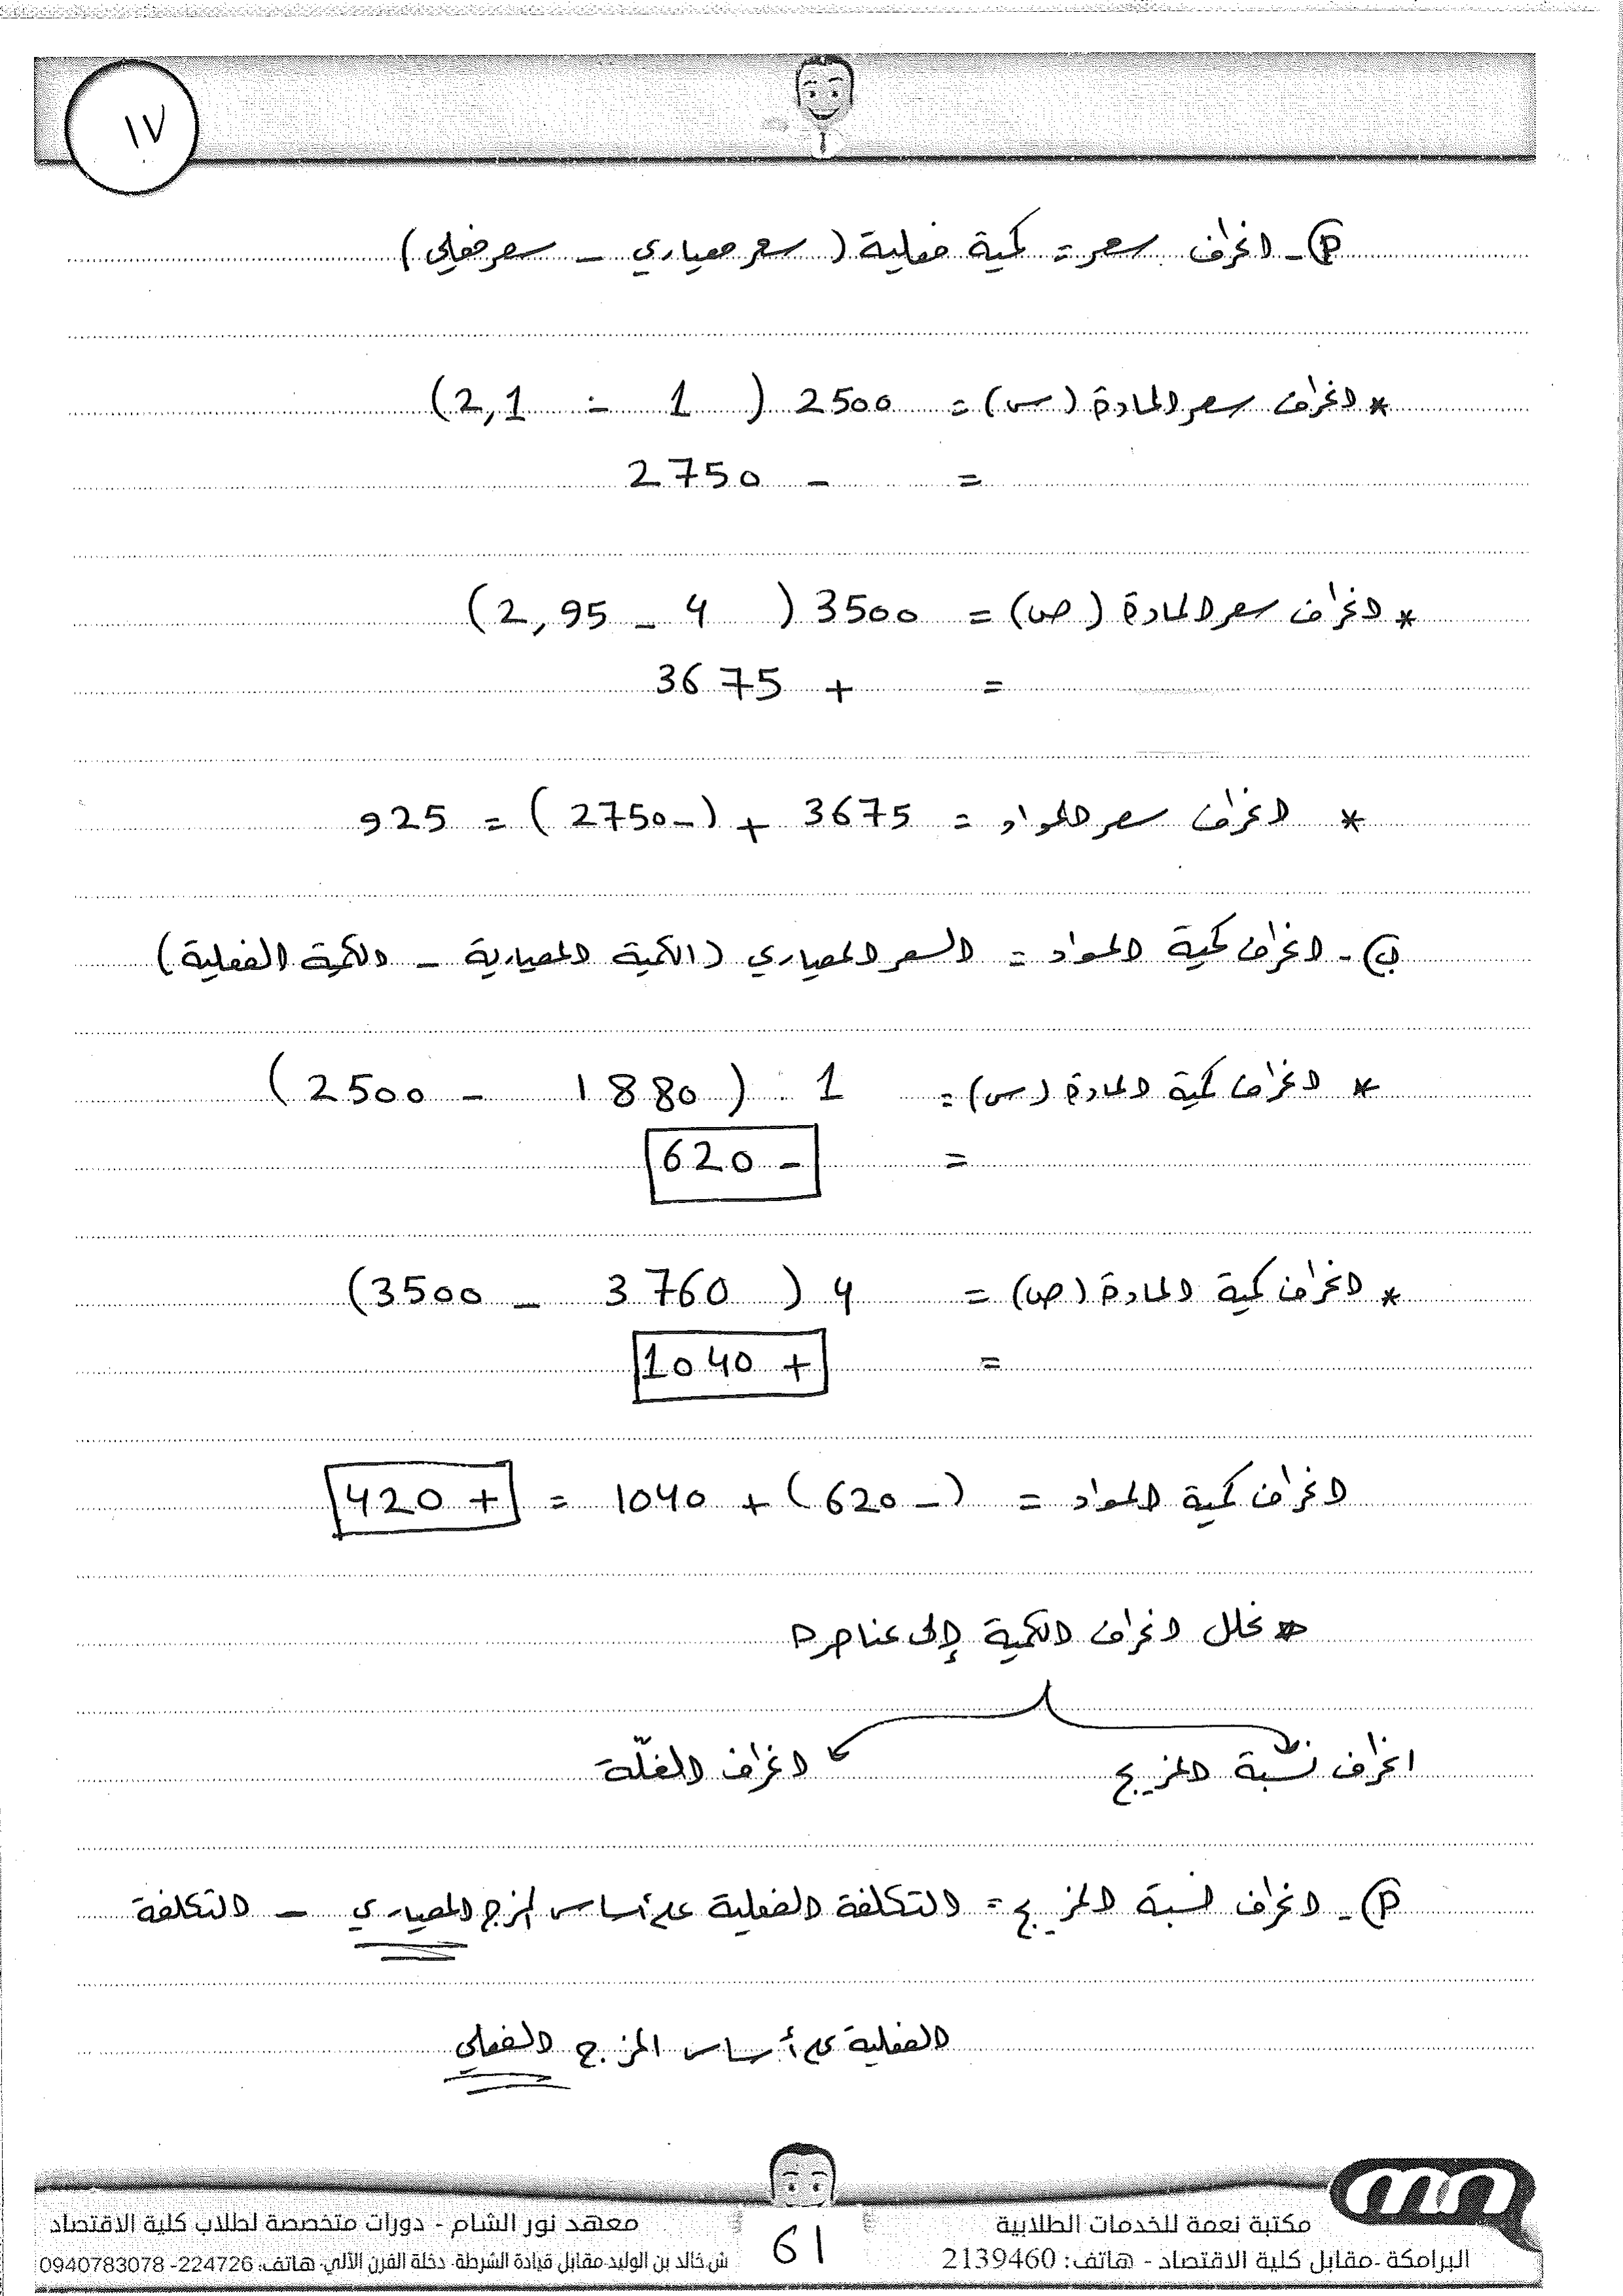 ١٧
أ- انحراف سعر = كمية فعلية (سعر معياري - سعر فعلي)
* انحراف سعر المادة (س) = 2500 (1 - 2,1)
= - 2750
* انحراف سعر المادة (ص) = 3500 (4 - 2,95)
= + 3675
* انحراف سعر المواد = 3675 + (-2750) = 925
ب- انحراف كمية المواد = السعر المعياري (الكمية المعيارية - الكمية الفعلية)
* انحراف كمية المادة (س) = 1 (1880 - 2500)
= - 620
* انحراف كمية المادة (ص) = 4 (3760 - 3500)
= + 1040
انحراف كمية المواد = (-620) + 1040 = + 420
* نحلل انحراف الكمية إلى عناصره
انحراف نسبة المزيج انحراف الغلّة
أ- انحراف نسبة المزيج = التكلفة الفعلية على أساس المزج المعياري - التكلفة
الفعلية على أساس المزج الفعلي
مكتبة نعمة للخدمات الطلابية
البرامكة -مقابل كلية الاقتصاد - هاتف: 2139460
61
معهد نور الشام - دورات متخصصة لطلاب كلية الاقتصاد
ش.خالد بن الوليد-مقابل قيادة الشرطة- دخلة الفرن الآلي- هاتف: 224726- 0940783078